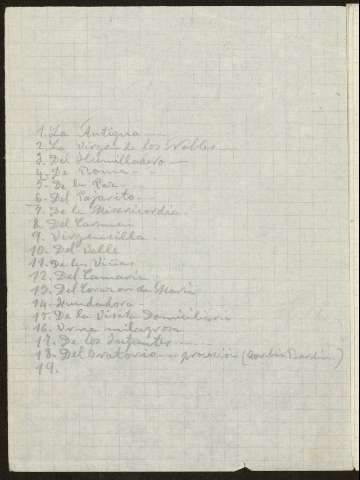 1. La Antigua
2. La Virgen de los Nobles
3. Del Humilladero
4. De Roma
5. De la Paz
6. Del Pajarito
7. De la Misericordia
8. Del Carmen
9. Virgencilla
10. Del Valle
11. De las Viñas
12. Del Camarín
13. Del Corazon de María
14. Fundadora
15. De la Visita Domiciliaria
16. Urna milagrosa
17. De los Infantes
18. Del Oratorio procesión
19.